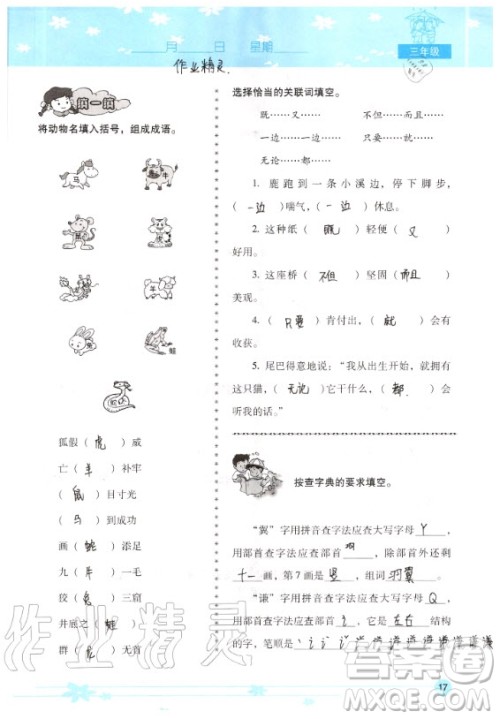 月 日 星期
三年级
作业精灵.
疯一疯
将动物名填入括号，组成成语。
马
牛
鼠
虎
龙
羊
兔
蛙
蛇
狐假（虎）威
亡（羊）补牢
（鼠）目寸光
（马）到成功
画（蛇）添足
九（牛）一毛
狡（兔）三窟
井底之（蛙）
群（龙）无首
选择恰当的关联词填空。
既……又…… 不但……而且……
一边……一边…… 只要……就……
无论……都……
1. 鹿跑到一条小溪边，停下脚步，
（一边）喘气，（一边）休息。
2. 这种纸（既）轻便（又）
好用。
3. 这座桥（不但）坚固（而且）
美观。
4.（只要）肯付出，（就）会有
收获。
5. 尾巴得意地说：“我从出生开始，就拥有
这只猫，（无论）它干什么，（都）会
听我的话。”
按查字典的要求填空。
“翼”字用拼音查字法应查大写字母 Y ，
用部首查字法应查部首 羽 ，除部首外还有
十一 画，第7画是 竖 ，组词 羽翼 。
“谦”字用拼音查字法应查大写字母 Q ，
用部首查字法应查部首 讠 ，它是 左右 结构
的字，笔顺是
17
作业精灵
答案圈
MXQE.COM